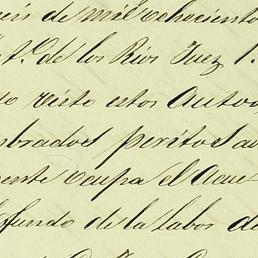 seis de mil ochociento
de los Rios Juez 1.
to visto estos Autos
mbrados peritos a
mente ocupa el Acue
fundo de la Labor de